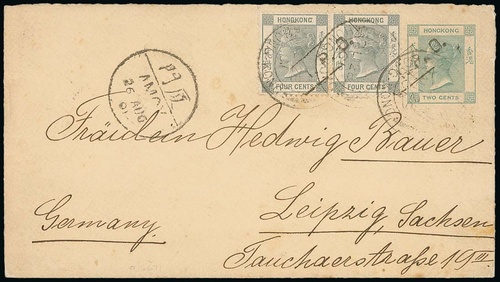 HONGKONG
HONGKONG
HONGKONG
FOUR CENTS
FOUR CENTS
TWO CENTS
AMOY
26 AUG
Fräulein Hedwig Bauer
Leipzig, Sachsen
Germany.
Tauchaerstraße 19III